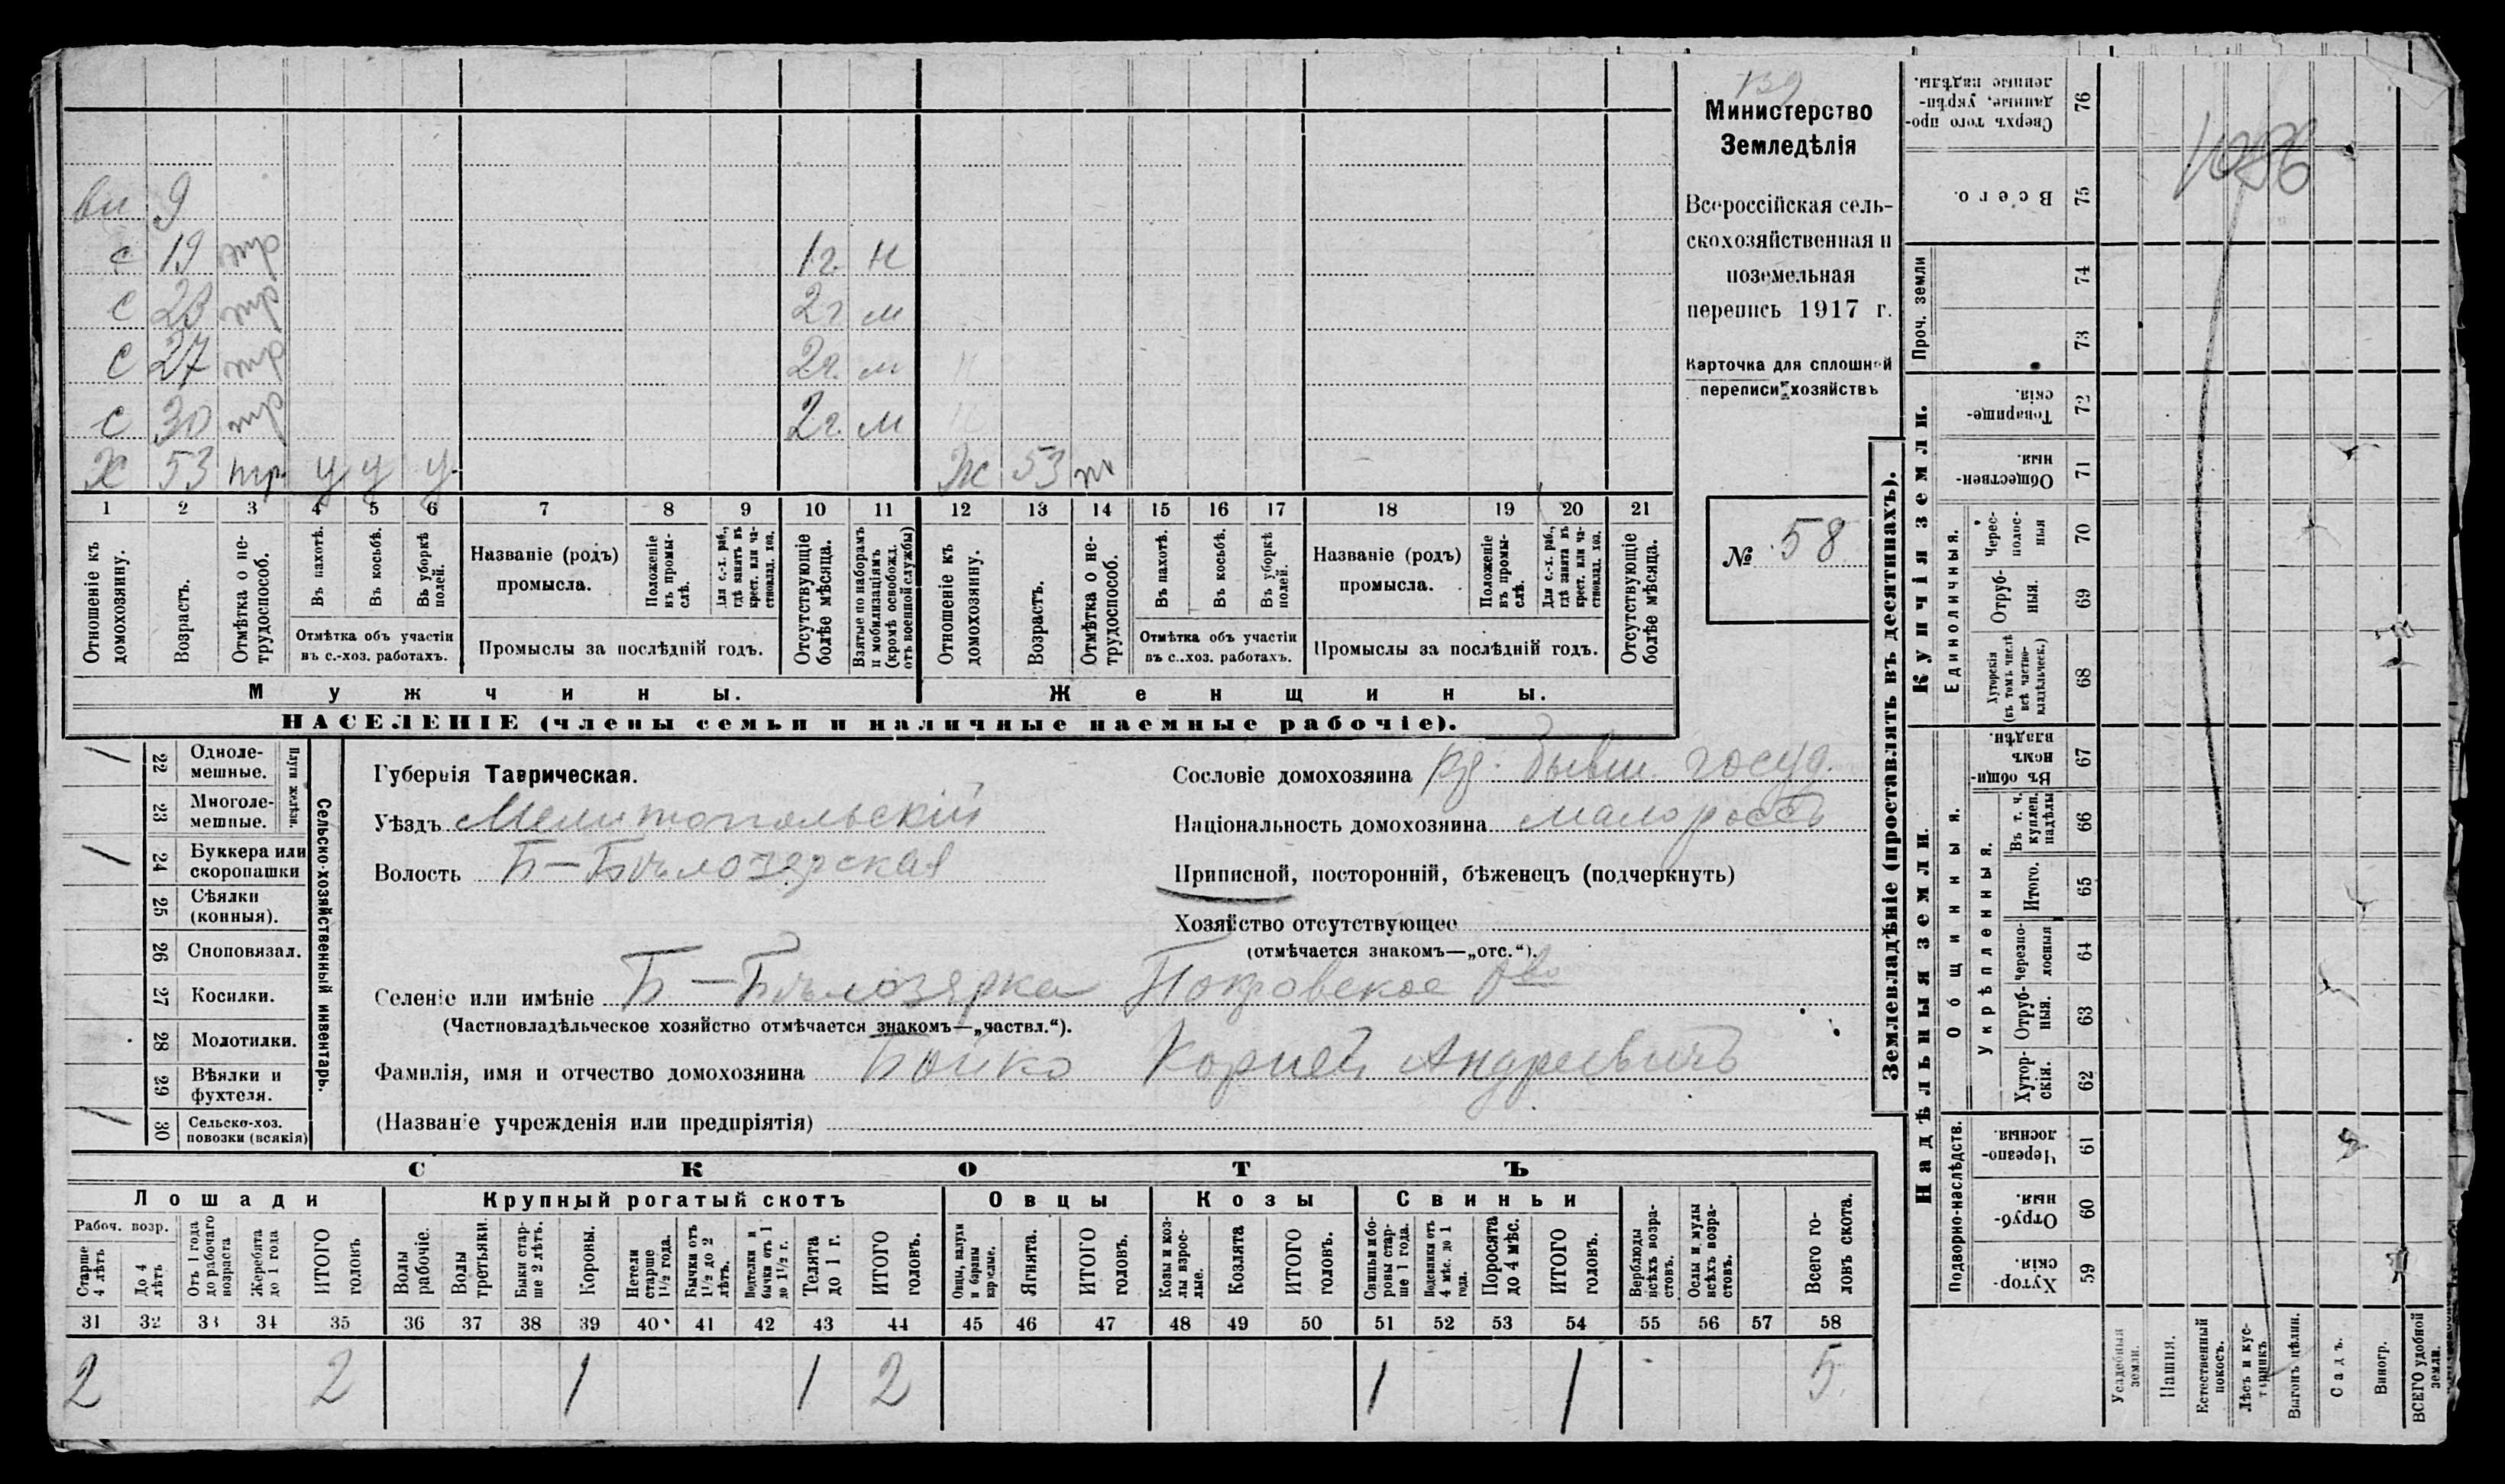 139
Министерство
Земледѣлія
Всероссійская сель-
скохозяйственная и
поземельная
перепись 1917 г.
Карточка для сплошной
переписи хозяйствъ
№ 58
вн 9
с 19 1г. н
с 23 2г м
с 27 2г. м
с 30 2г. м
Х 53 тр. у у у Ж 53 т
1 2 3 4 5 6 7 8 9 10 11 12 13 14 15 16 17 18 19 20 21
Отношеніе къ домохозяину.
Возрастъ.
Отмѣтка о не-трудоспособ.
Въ пахотѣ.
Въ косьбѣ.
Въ уборкѣ полей.
Отмѣтка объ участіи
въ с.-хоз. работахъ.
Названіе (родъ)
промысла.
Положеніе въ промы-слѣ.
Для с.-х. раб., гдѣ занятъ въ крест. или ча-стновлад. хоз.
Промыслы за послѣдній годъ.
Отсутствующіе болѣе мѣсяца.
Взятые по наборамъ и мобилизаціямъ (кромѣ освобожд. отъ военной службы)
Отношеніе къ домохозяину.
Возрастъ.
Отмѣтка о не-трудоспособ.
Въ пахотѣ.
Въ косьбѣ.
Въ уборкѣ полей.
Отмѣтка объ участіи
въ с.-хоз. работахъ.
Названіе (родъ)
промысла.
Положеніе въ промы-слѣ.
Для с.-х. раб., гдѣ занятъ въ крест. или ча-стновлад. хоз.
Промыслы за послѣдній годъ.
Отсутствующіе болѣе мѣсяца.
Мужчины. Женщины.
НАСЕЛЕНІЕ (члены семьи и наличные наемные рабочіе).
Сельско-хозяйственный инвентарь.
Плуги желѣзн.
/ 22 Одноле-мешные.
23 Многоле-мешные.
/ 24 Буккера или скоропашки
25 Сѣялки (конныя).
26 Сноповязал.
27 Косилки.
28 Молотилки.
29 Вѣялки и фухтеля.
/ 30 Сельско-хоз. повозки (всякія)
Губернія Таврическая.
Уѣздъ Мелитопольскій
Волость Б-Бѣлозерская
Сословіе домохозяина бывш. госуд.
Національность домохозяина малороссъ
Приписной, посторонній, бѣженецъ (подчеркнуть)
Хозяйство отсутствующее
(отмѣчается знакомъ—„отс.“).
Селеніе или имѣніе Б-Бѣлозярка Покровское О-во
(Частновладѣльческое хозяйство отмѣчается знакомъ—„частвл.“).
Фамилія, имя и отчество домохозяина Бойко Корней Андреевичъ
(Названіе учрежденія или предпріятія)
СКОТЪ
Лошади Крупный рогатый скотъ Овцы Козы Свиньи
Рабоч. возр.
Старше 4 лѣтъ
До 4 лѣтъ
Отъ 1 года до рабочаго возраста
Жеребята до 1 года
ИТОГО головъ
Волы рабочіе.
Волы третьяки.
Быки стар-ше 2 лѣтъ.
Коровы.
Нетели старше 1½ года.
Бычки отъ 1½ до 2 лѣтъ.
Подтелки и бычки отъ 1 до 1½ г.
Телята до 1 г.
ИТОГО головъ.
Овцы, валухи и бараны взрослые.
Ягнята.
ИТОГО головъ.
Козы и коз-лы взрос-лые.
Козлята
ИТОГО головъ.
Свиньи и бо-ровы стар-ше 1 года.
Подсвинки отъ 4 мѣс. до 1 года.
Поросята до 4 мѣс.
ИТОГО головъ.
Верблюды всѣхъ возра-стовъ.
Ослы и мулы всѣхъ возра-стовъ.
Всего го-ловъ скота.
31 32 33 34 35 36 37 38 39 40 41 42 43 44 45 46 47 48 49 50 51 52 53 54 55 56 57 58
2 2 1 1 2 1 1 5
Землевладѣніе (проставлять въ десятинахъ).
Купчія земли.
Надѣльныя земли.
Сверхъ того про-данные, укрѣп-ленные надѣлы. 76
Всего. 75
Проч. земли
74
73
Товарище-скія. 72
Обществен-ныя. 71
Единоличныя.
Черес-полос-ныя 70
Отруб-ныя. 69
Хуторскія (въ томъ числѣ всѣ частно-владѣльческ.) 68
Общинныя.
Въ общин-номъ владѣн. 67
Укрѣпленныя.
Въ т. ч. куплен. надѣлы 66
Итого. 65
Черезпо-лосныя 64
Отруб-ныя. 63
Хутор-скія. 62
Подворно-наслѣдств.
Черезпо-лосныя. 61
Отруб-ныя. 60
Хутор-скія. 59
Усадебныя земли.
Пашня.
Естественный покосъ.
Лѣсъ и кус-тарникъ
Выгонъ цѣлин.
Садъ.
Виногр.
ВСЕГО удобной земли.